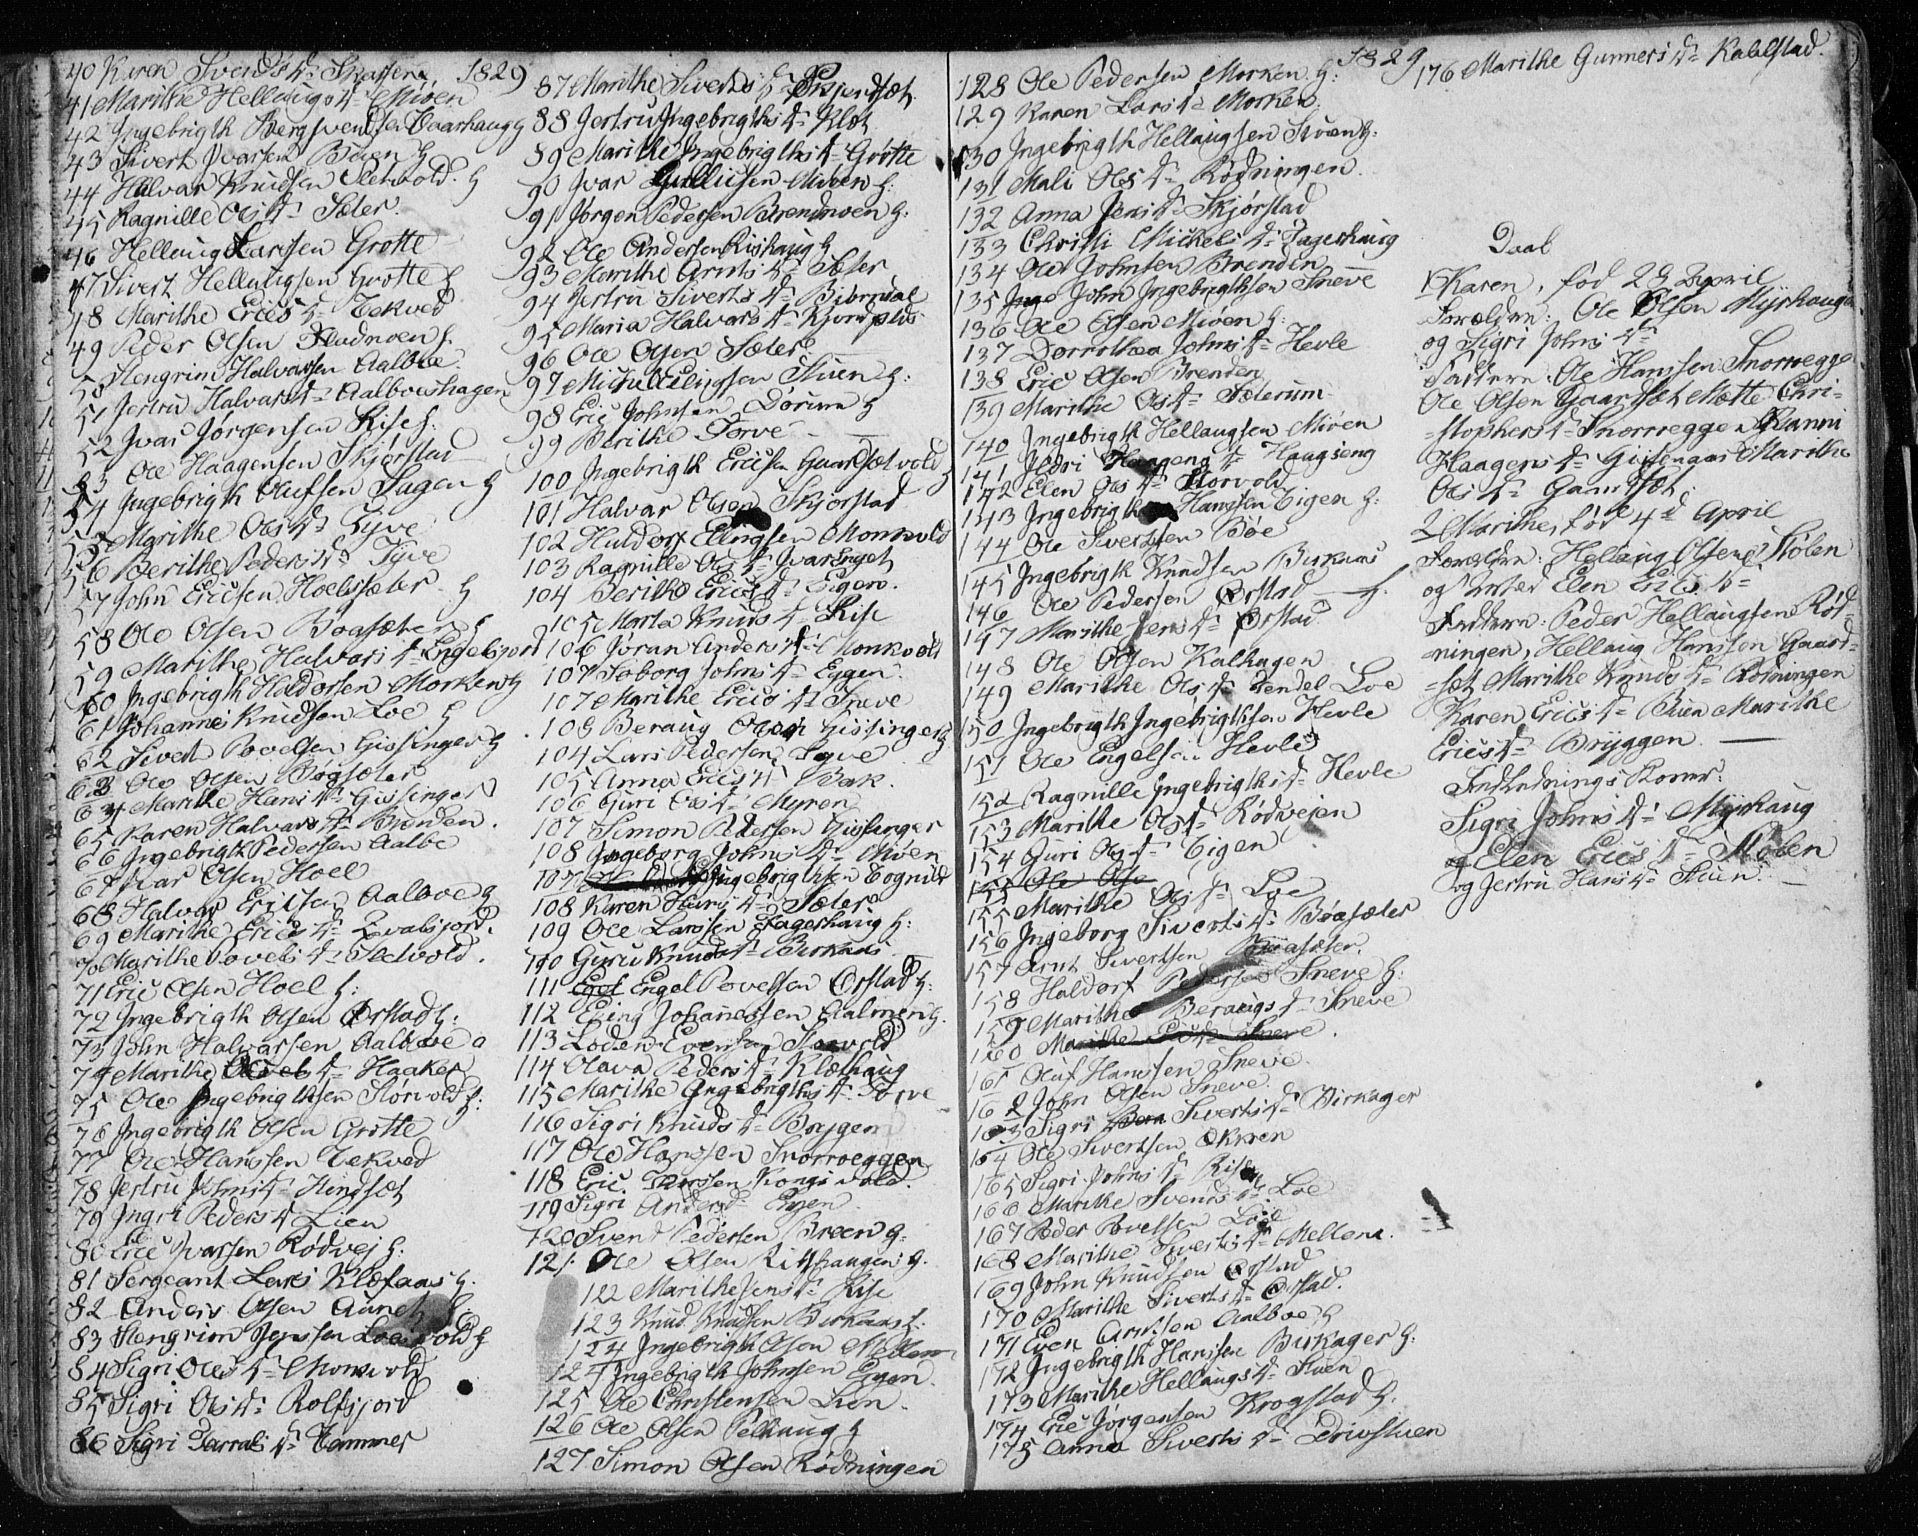 40 Karen Svends D: Skassem, 1829
41 Marithe Hellaugs D: Miöen
42 Ingebrigth Bergsvendsen Vaarhaug g
43 Sivert Ivarsen Böen g
44 Halvar Knudsen Sletvold. g
45 Ragnille Ols D: Sæter.
46 Hellaug Larssen Grötte
47 Sivert Hellaugsen Grötte g
48 Marithe Erics D: Tekved
49 Peder Olsen
50 Stengrim Halvarsen Aalbue
51 Jertru Halvars D: Aalboushagen
52 Ivar Jörgensen Rise g:
53 Ole Haagensen Skjörstad
54 Ingebrigth Olufsen Hagen g
55 Marithe Ols D: Tyve
56 Berithe Peders D: Tyve
57 John Ericsen Hoelssæter g
58 Ole Olsen Boasæter g
59 Marithe Halvars D: Engelsjord
60 Ingebrigth Haldorsen Morken g
61 Johannes Knudsen Loe g
62 Sivert Povelsen Gissinger g
63 Ole Olsen Bögsæter
64 Marithe Hans D: Gissinger
65 Karen Halvars D: Brenden.
66 Ingebrigth Pedersen Aalbo
67 Ivar Olsen Hoel
68 Halvar Ericsen Aalboe g
69 Marithe Erics D: Qvalsjord.
70 Marithe Povels D: Sletvold.
71 Eric Olsen Hoel g:
72 Ingebrigth Olsen Örstad g:
73 John Halvarsen Aalboe
74 Marithe D: Haaker
75 Ole Ingebrigthsen Storvold g:
76 Ingebrigth Olsen Grötte
77 Ole Hanssen Tekved
78 Jertru Johns D: Hindsæt
79 Ingri Peders D: Lien
80 Eric Ivarsen Rödvej g:
81 Sergeant Lars Klæfaas g.
82 Anders Olsen Aunet g
83 Stengrim Jenssen Loesvold g
84 Sigri Ols D: Monsvold
85 Sigri Ols D: Rolfsjord
86 Sigri D: Tammes
87 Marithe Siverts D:
88 Jertru Ingebrigths D: Klæt
89 Marithe Ingebrigths D: Grötte
90 Ivar Gulliksen Miöen g:
91 Jörgen Pedersen Brendmoen g:
92 Ole Andersen Rishaug g
93 Marithe Arnts D: Sæter
94 Jertru Siverts D: Bibrudal
95 Maria Halvars D:
96 Ole Olsen Sæter
97 Michel Elingsen Stuen g:
98 Eric Johnsen Dorum g
99 Berithe Torve
100 Ingebrigth Ericsen Gaardsætvold g
101 Halvar Olsen Skjörstad
102 Haldorf Elingsen Monsvold
103 Ragnille Ols D:
104 Berithe Erics D: Eggen.
105 Marta Knuds D: Rise
106 Joran Anders D: Monsvold
107 Soborg Johns D: Eggen.
107 Marithe Erics D: Sneve
103 Beraug Olsen Gissinger g
104 Lars Pedersen Tyve
105 Anna Erics D: Bak.
106 Guri Ols D: Myren
107 Simon Pedersen Gissinger
108 Ingeborg Johns D: Miöen
107 Ingebrigthsen
108 Karen Hans D: Sæter
109 Ole Larssen Fagerhaug g:
110 Guru Knuds D: Birkaas
111 Engel Povelsen Örstad g:
112 Eling Johannessen Aalmen g.
113 Loden Evensen Storvold
114 Olava Peders D: Klæthaug
115 Marithe Ingebrigths D: Torve
116 Sigri Knuds D: Brygen
117 Ole Hanssen Snorroeggen
118 Eric Kongsvold.
119 Sigri Anders D Engen
120 Svend Pedersen Breen g.
121. Ole Olsen Ritshaugen g.
122 Marithe Jens D: Rise
123 Knud Knudsen Birkaas g.
124 Ingebrigth Olsen Mellem
124 Ingebrigth Johnsen Eggen.
125 Ole Christensen Lien.
126 Ole Olsen Pelhaug g
127 Simon Olsen Rödningen
128 Ole Pedersen Morken g: 1829
129 Karen Lars D: Morken.
130 Ingebrigth Hellaugsen Stuen g:
131 Mali Ols D: Rödningen.
132 Anna Jens D: Skjörstad
133 Christi Mickels D: Fagerhaug
134 Ole Johnsen Brenden
135 John Ingebrigthsen Sneve
136 Ole Olsen Miöen g:
137 Dorrothea Johns D: Hevle
138 Eric Olsen Brenden
139 Marithe Ols D: Sæterum
140 Ingebrigth Hellaugsen Miöen
141 Haagens D: Haagseng
142 Elen Ols D: Storvold
143 Ingebrigth Hanssen Eigen g:
144 Ole Sivertsen Böe
145 Ingebrigth Knudsen Birkaas
146 Ole Pedersen Örstad g.
147 Marithe Jens D: Örstad
148 Ole Olsen Kalhagen
149 Marithe Ols D: Loe
150 Ingebrigth Ingebrigthsen Hevle
151 Ole Engelsen Hevle
152 Ragnille Ingebrigths D: Hevle
153 Marithe Ols D: Rödvejen
154 Guri Ols D: Eigen
155 Ole Olse
155 Marithe Ols D: Loe
156 Ingeborg Siverts D: Böasæter
157 Arnt Sivertsen Böasæter.
158 Haldorf Pedersen Sneve g:
159 Marithe Beraugs D: Sneve
160 Marithe Sneve.
161 Oluf Hanssen Sneve
162 John Olsen Sneve.
163 Sigri Siverts D: Birkager
164 Ole Sivertsen Ekren
165 Sigri Johns D: Rise
166 Marithe Svends D: Loe
167 Peder Povelsen Loe
168 Marithe Siverts D: Mellem.
169 John Knudsen Örstad
170 Marithe Siverts D: Örstad.
171 Even Arntsen Aalboe g
172 Ingebrigth Hanssen Birkager g.
173 Marithe Hellaugs D: Stuen
174 Eric Jörgensen Krogstad g.
175 Anna Siverts D: Drivstuen
176 Marithe Gunners D: Kaldstad.
Daab
1 Karen, föd 23 April
Forældre: Ole Olsen Myrhaug
og Sigri Johns D:
Faddere: Ole Hanssen Snorregge
Ole Olsen Gaardsæt Mætte Chri-
stophers D: Snorreggen Ranni
Haagens D: Gisinger Marithe
Ols D: Gaardsæt.
2 Marithe, föd 4d April
Forældre: Hellaug Olsen Stölen
og Elen Erics D:
Faddere: Peder Hellaugsen Röd-
ningen, Hellaug Hanssen Gaard-
sæt Marithe Knuds D: Rödningen
Karen Erics D: Buen Marithe
Erics D: Bryggen
Indlednings Koner.
Sigri Johns D: Myrhaug
og Elen Erics D: Stölen
og Jertru Hans D: Stuen.